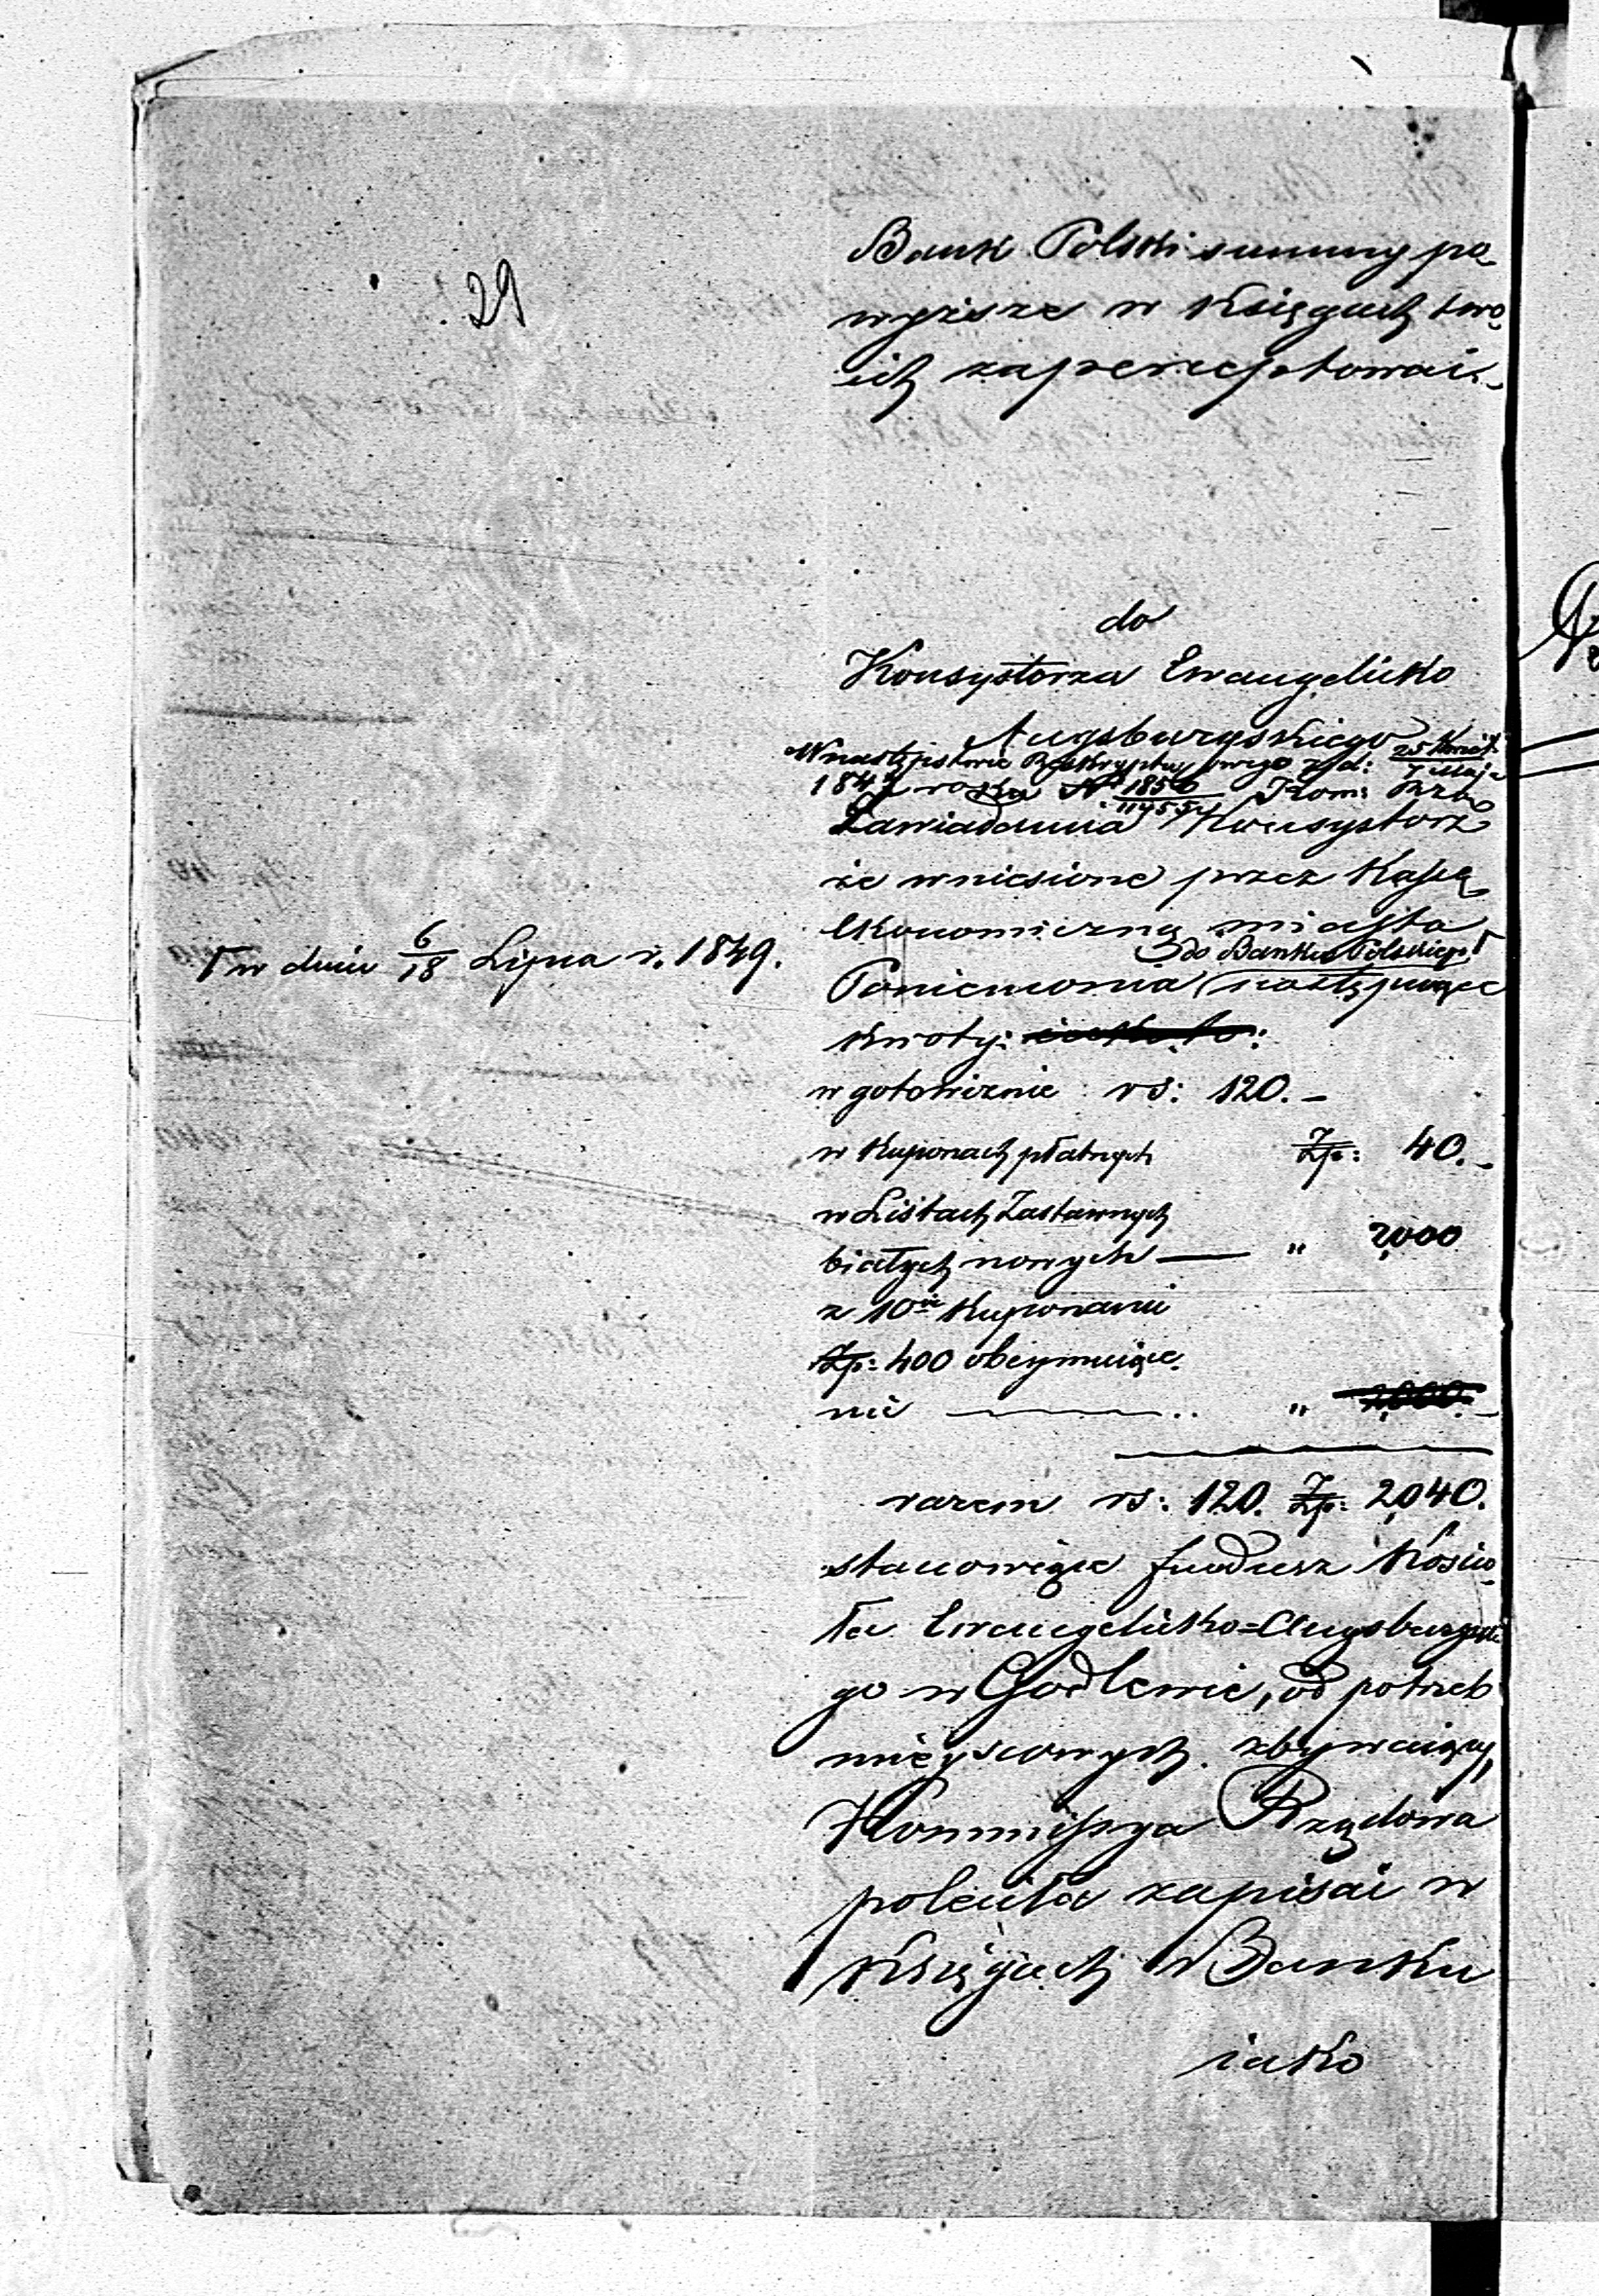 29
Bank Polski summy po-
wyższe w Księgach swo-
ich zaperceptował.
do
Konsystorza Ewangelicko
Augsburgskiego
W następstwie Reskryptu swego z d: 25 Kwiet. / 7 Maja
1849 roku N 1856 / Kom: Rzą
Zawiadamia Konsystorz
że wniesione przez Kassę
Ekonomiczną miasta
do Banku Polskiego Γ
Γ w dniu 6/18 Lipca r. 1849.
Poniemonia następujące
kwoty:
w gotowiznie rs: 120. –
w Kuponach płatnych Zp: 40. –
w Listach Zastawnych
białych nowych — " 2,000
z 10iu Kuponami
Zp: 400 obeymuiące-
mi — " 2,000. –
razem rs: 120. Zp: 2,040.
stanowiące fundusz Kościo-
ła Ewangelicko=Augsburgskie
go w Godlewie, od potrzeb
mieyscowych zbywaiący,
Kommissya Rządowa
poleciła zapisać w
Księgach w Banku
iako